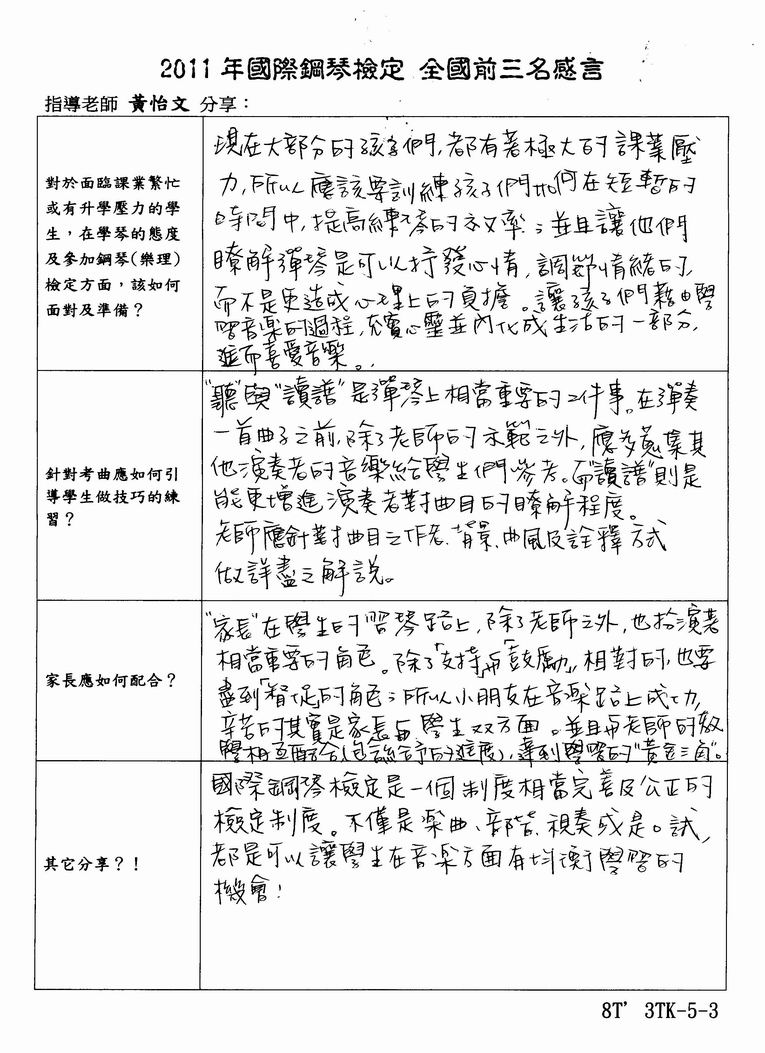 2011年國際鋼琴檢定 全國前三名感言
指導老師 黃怡文 分享：
對於面臨課業繁忙
或有升學壓力的學
生，在學琴的態度
及參加鋼琴(樂理)
檢定方面，該如何
面對及準備？
現在大部分的孩子們，都有著極大的課業壓
力，所以應該要訓練孩子們如何在短暫的
時間中，提高練琴的效率；並且讓他們
瞭解彈琴是可以抒發心情，調節情緒的，
而不是更造成心理上的負擔。讓孩子們藉由學
習音樂的過程，充實心靈並內化成生活的一部分，
進而喜愛音樂。
針對考曲應如何引
導學生做技巧的練
習？
"聽"與"讀譜"是彈琴上相當重要的二件事。在彈奏
一首曲子之前，除了老師的示範之外，應多蒐集其
他演奏者的音樂給學生們參考。而"讀譜"則是
能更增進演奏者對曲目的瞭解程度。
老師應針對曲目之作者、背景、曲風及詮釋方式
做詳盡之解說。
家長應如何配合？
"家長"在學生的習琴路上，除了老師之外，也扮演著
相當重要的角色。除了「支持」與「鼓勵」，相對的，也要
盡到「督促」的角色；所以小朋友在音樂路上成功，
辛苦的其實是家長與學生双方面。並且與老師的教
學相互配合(包括給予的進度)，達到學習的"黃金三角"。
其它分享？！
國際鋼琴檢定是一個制度相當完善及公正的
檢定制度。不僅是樂曲、音階、視奏或是口試，
都是可以讓學生在音楽方面有均衡學習的
機會！
8T' 3TK-5-3